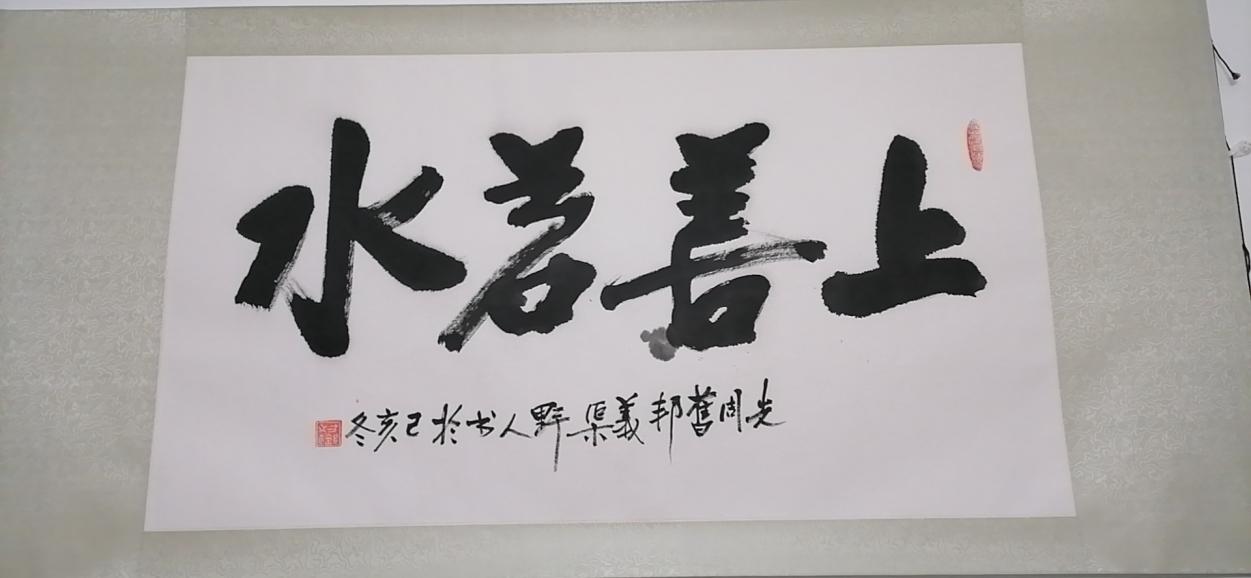 上善若水
先周舊邦義渠野人书於己亥冬